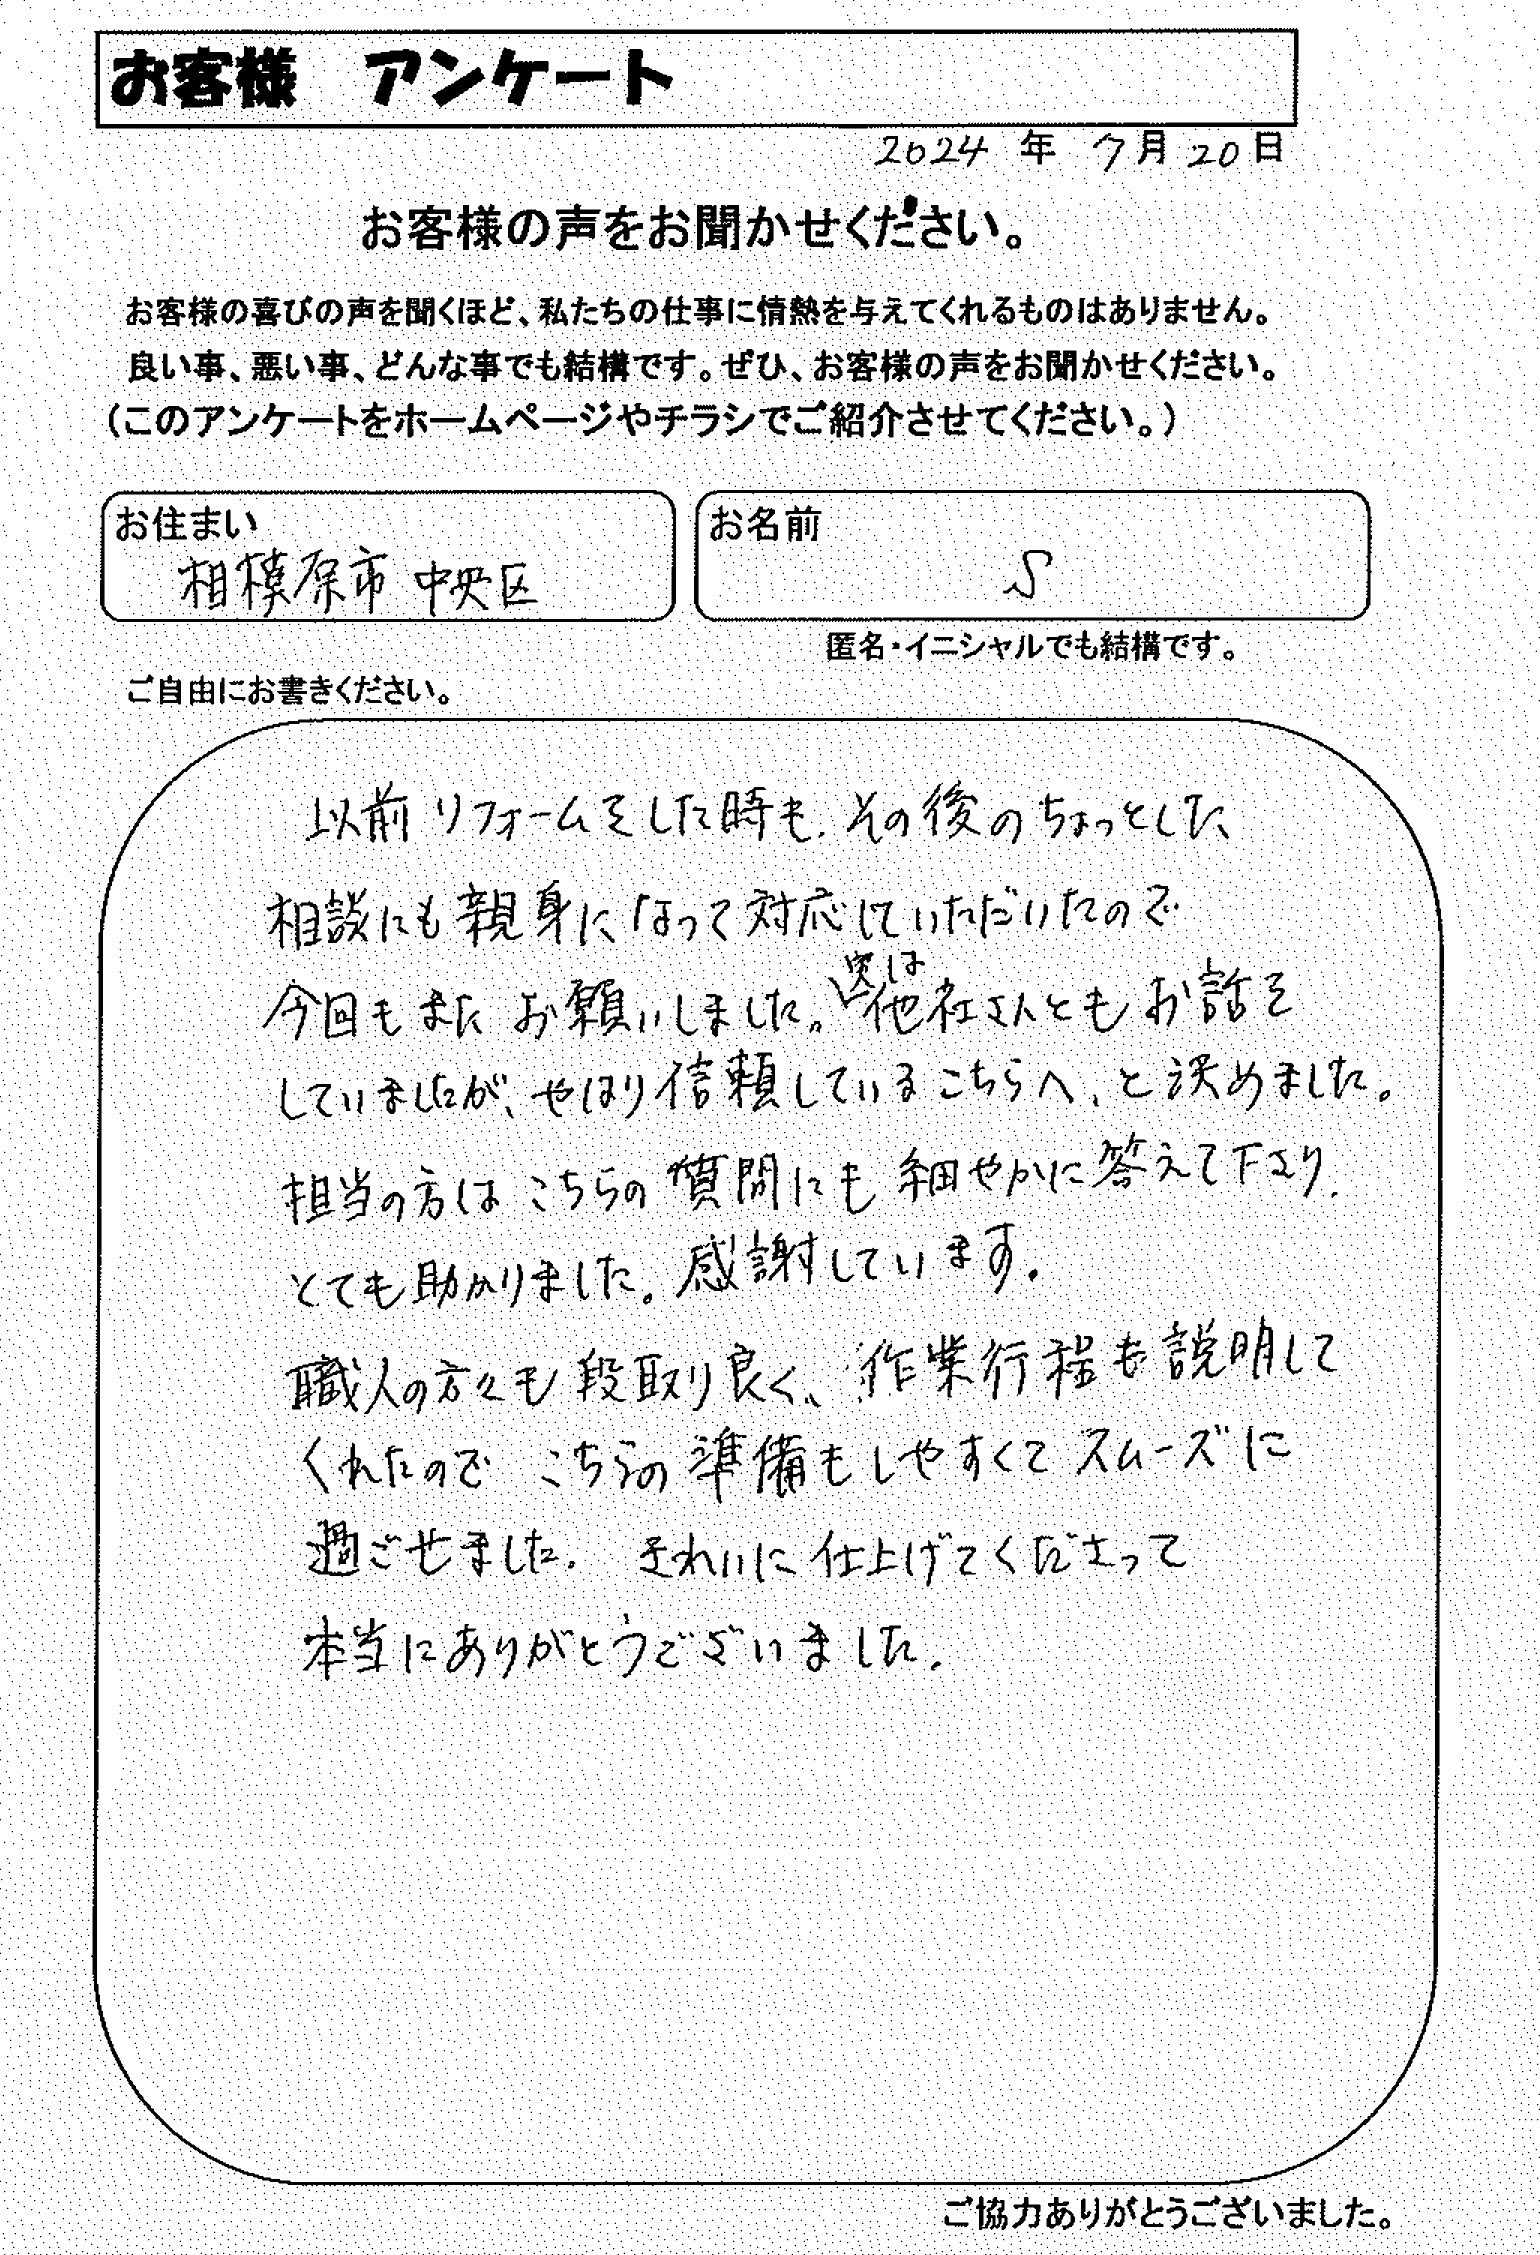 お客様　アンケート
2024 年 7月 20日
お客様の声をお聞かせください。
お客様の喜びの声を聞くほど、私たちの仕事に情熱を与えてくれるものはありません。
良い事、悪い事、どんな事でも結構です。ぜひ、お客様の声をお聞かせください。
（このアンケートをホームページやチラシでご紹介させてください。）
お住まい
相模原市 中央区
お名前
S
匿名・イニシャルでも結構です。
ご自由にお書きください。
以前リフォームをした時も、その後のちょっとした、
相談にも親身になって対応していただいたので
今回もまた お願いしました。実は他社さんともお話を
していましたが、やはり信頼しているこちらへ、と決めました。
担当の方は こちらの 質問にも 細やかに答えて下さり、
とても助かりました。感謝しています。
職人の方々も 段取り良く、作業行程も説明して
くれたので こちらの 準備もしやすくて スムーズに
過ごせました。 きれいに 仕上げてくださって
本当にありがとうございました。
ご協力ありがとうございました。